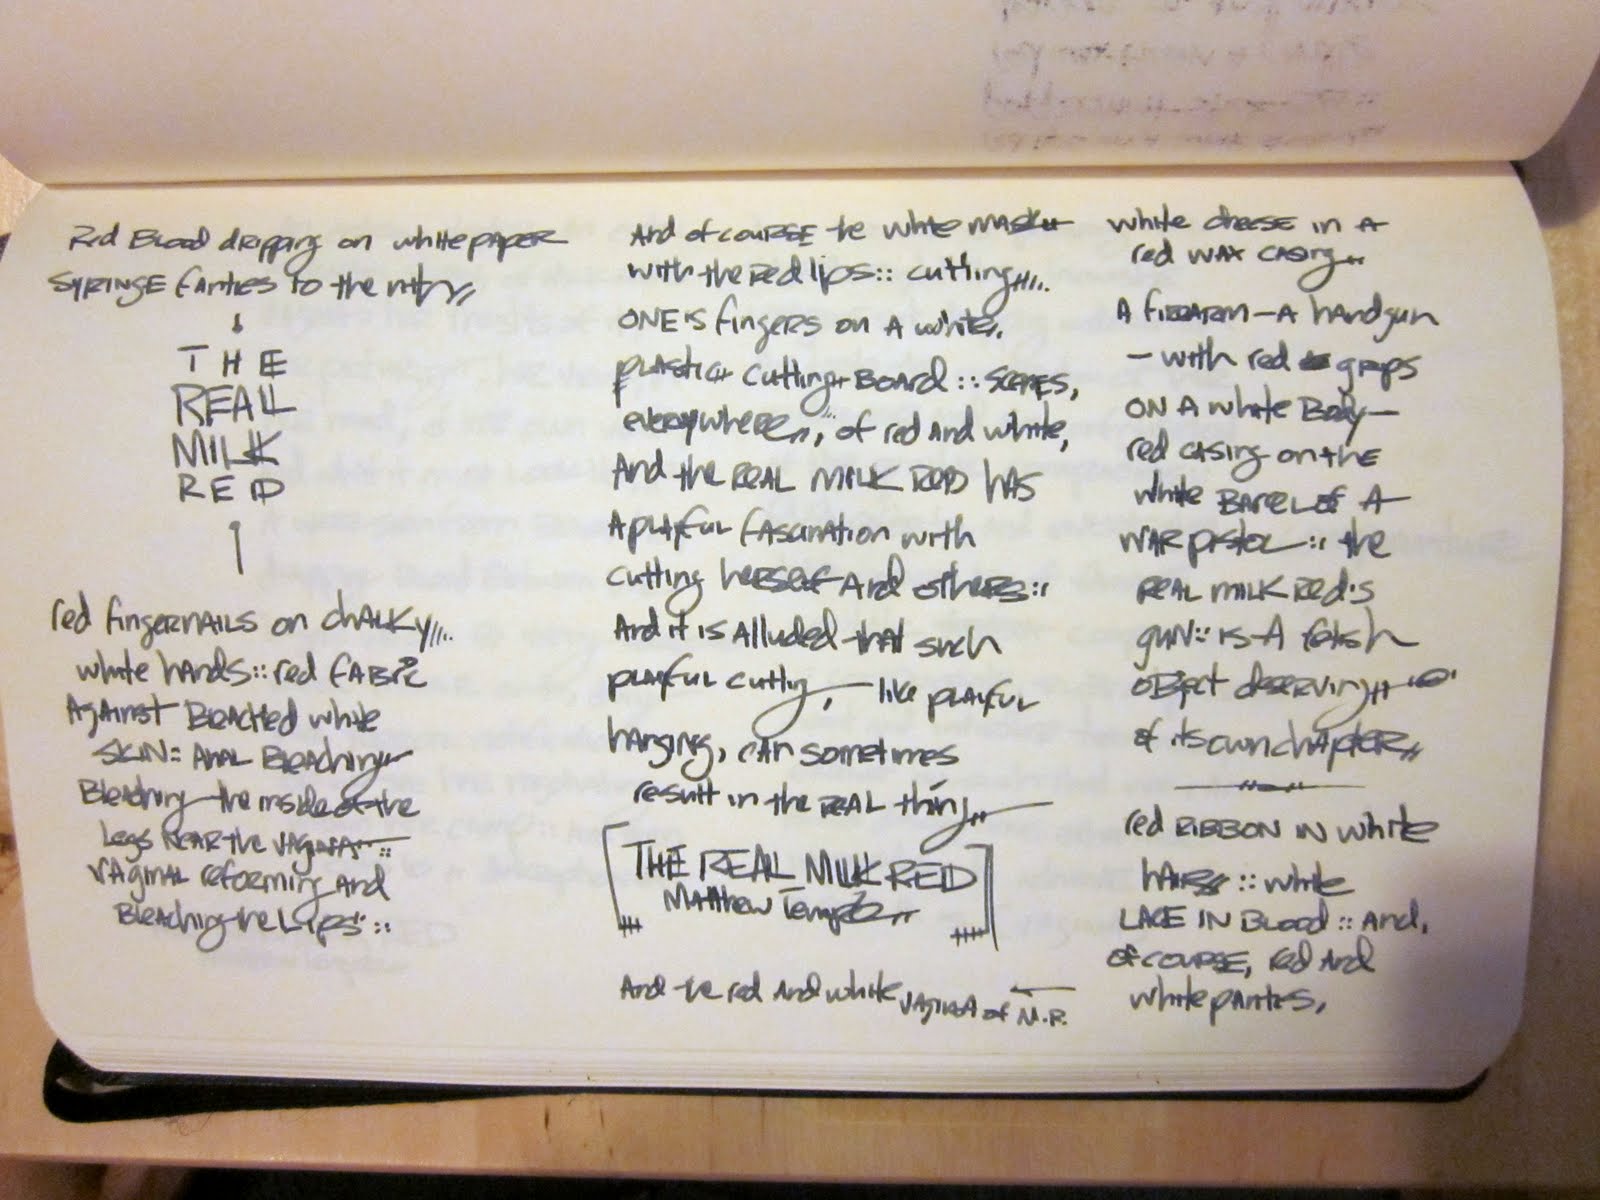 Red Blood dripping on white paper
SYRINGE
THE
REAL
MILK
RED
red fingernails on chalky,,,..
white hands :: red fabric
Against Bleached white
SKIN :: Anal Bleaching
Bleaching the inside of the
Legs near the vagina ::
vaginal reforming and
Bleaching the Lips ::
And of course the white mask
with the red lips :: cutting,,,..
ONE is fingers on A white
plastic cutting Board :: scenes,
everywhere,,, of red and white,
And the REAL MILK RED has
A playful fascination with
cutting herself And others ::
And it is Alluded that such
playful cutting, — like playful
hanging, can sometimes
result in the REAL thing,,
[THE REAL MILK RED]
Matthew
And the red and white vagina of M.R.
white cheese in A
red wax casing,,
A firearm — A handgun
— with red grips
ON A white Body —
red casing on the
white Barrel of A
WAR pistol :: the
REAL MILK Red's
gun :: is A fetish
object deserving
of its own chapter,,
red RIBBON IN white
hair :: white
LACE IN Blood :: And,
of course, red And
white panties,